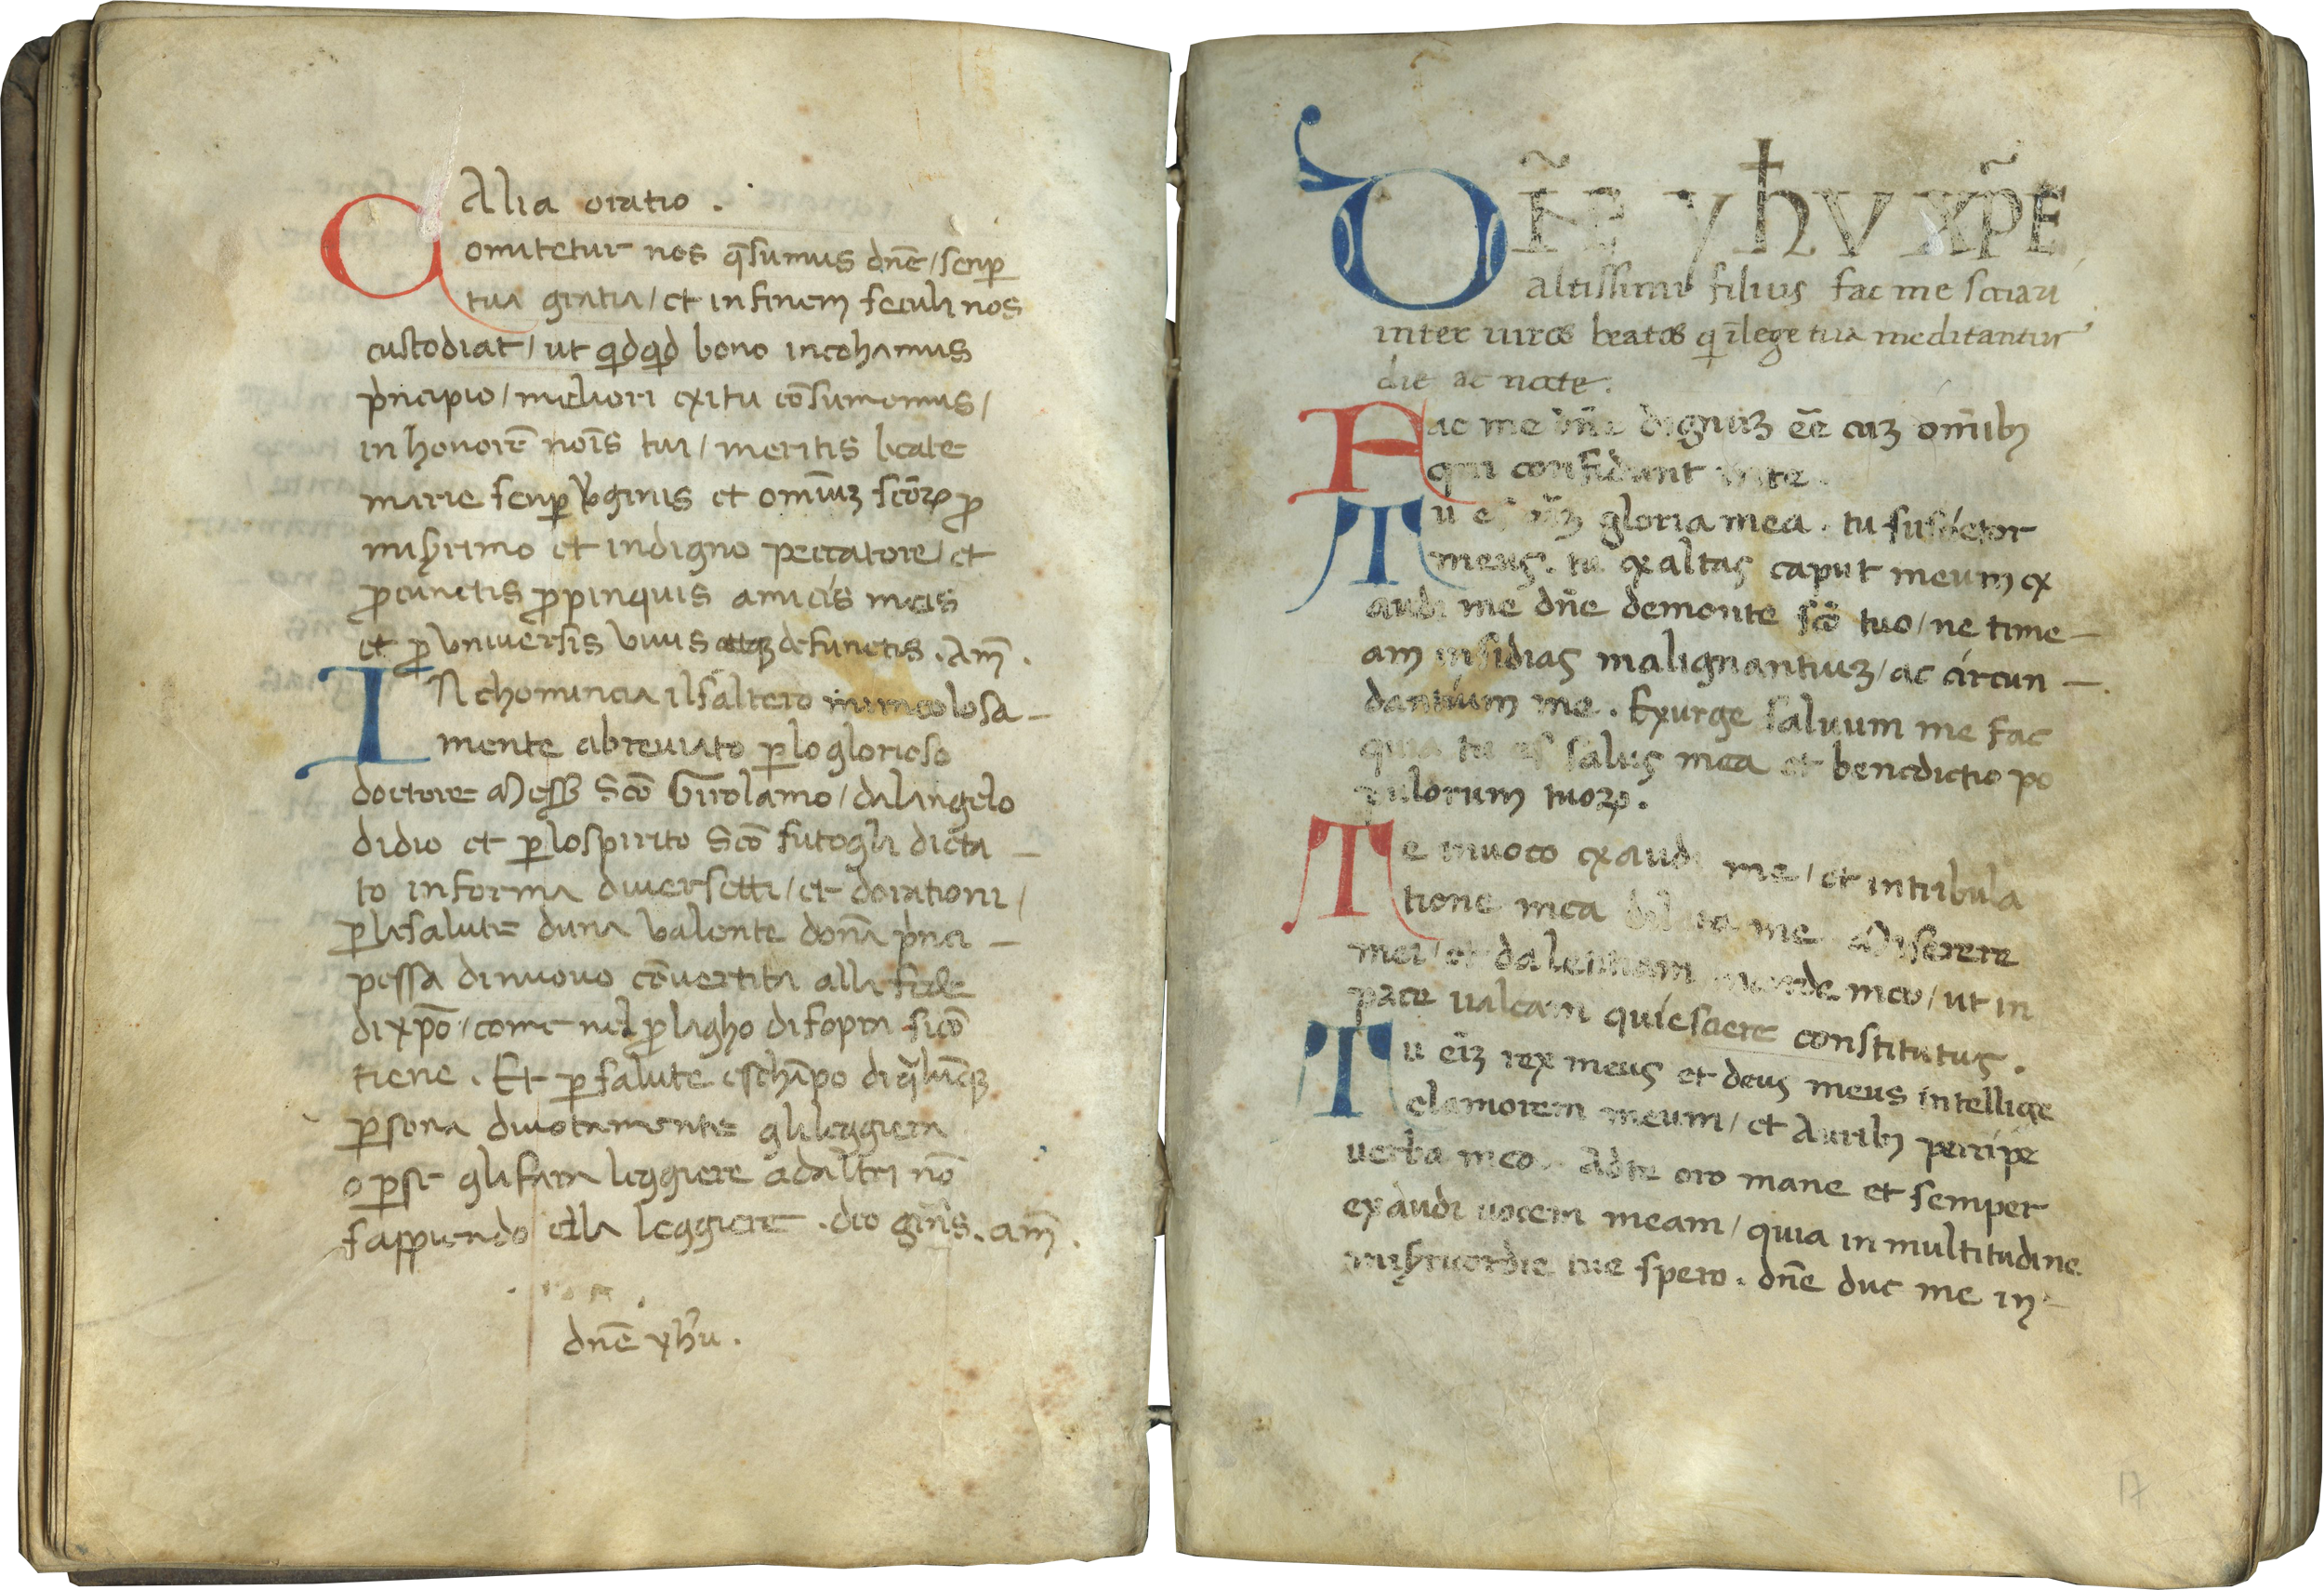 Alia oratio .
Comitetur nos q̄sumus dn̄e / senp̱
tua gratia / et in finem seculi nos
custodiat / ut qdqd bono incohamus
p̓ncipio / meliori exitu cōsumemus /
in honorē noīs tui / meritis beate
marie senp̱ v̓ginis et omiuꝫ scōꝝ ꝓ
misꝫrimo et indigno peccatore / et
ꝓ cunctis ꝓpinquis amicis meis
et ꝓ universis vivis atqꝫ defunctis . Am̄ .
INchomincia il saltero miracolosa —
mente abreviato ꝑ lo glorioso
doctore Messꝫ Scō Girolamo / dalangelo
didio et ꝑ lospirito Scō futogli dicta —
to in forma diversetti / et dorationi /
ꝑ la salute duna valente dōna p̓nci —
pessa dinuovo cōvertita alla fede
di xp̄o / come nel ꝓlagho disopra sicō
tiene . Et ꝑ salute eschāpo di q̄lūcqꝫ
ꝑsona divotamente gli leggiera
o ꝑse gli fara leggiere adaltri nō
sappiendo ella leggiere . deo gr̄as . am̄ .
dn̄e yħu .
DN̄E YħV XP̄E
altissimi filius fac me sociari
inter uiros beatos q ī lege tua meditantur
die ac nocte .
Fac me dn̄e dignuꝫ eē cuꝫ om̄ibꝫ
qui confidunt in te .
Tu es gloria mea . tu susceptor
meus . tu exaltas caput meum ex
audi me dn̄e demonte scō tuo / ne time —
am insidias malignantiuꝫ / ac circun —
dantium me . Exurge saluum me fac
quia tu es salus mea et benedictio po
pulorum tuoꝝ .
Te inuoco exaudi me / et in tribula
tione mea dilata me Miserere
mei / et da letitiam in corde meo / ut in
pace ualeam quiescere constitutus .
Tu eīꝫ rex meus et deus meus intellige
clamorem meum / et auribꝫ percipe
uerba mea . Ad te oro mane et semper
exaudi uocem meam / quia in multitudine
misꝫricordie tue spero . dn̄e duc me in —
17